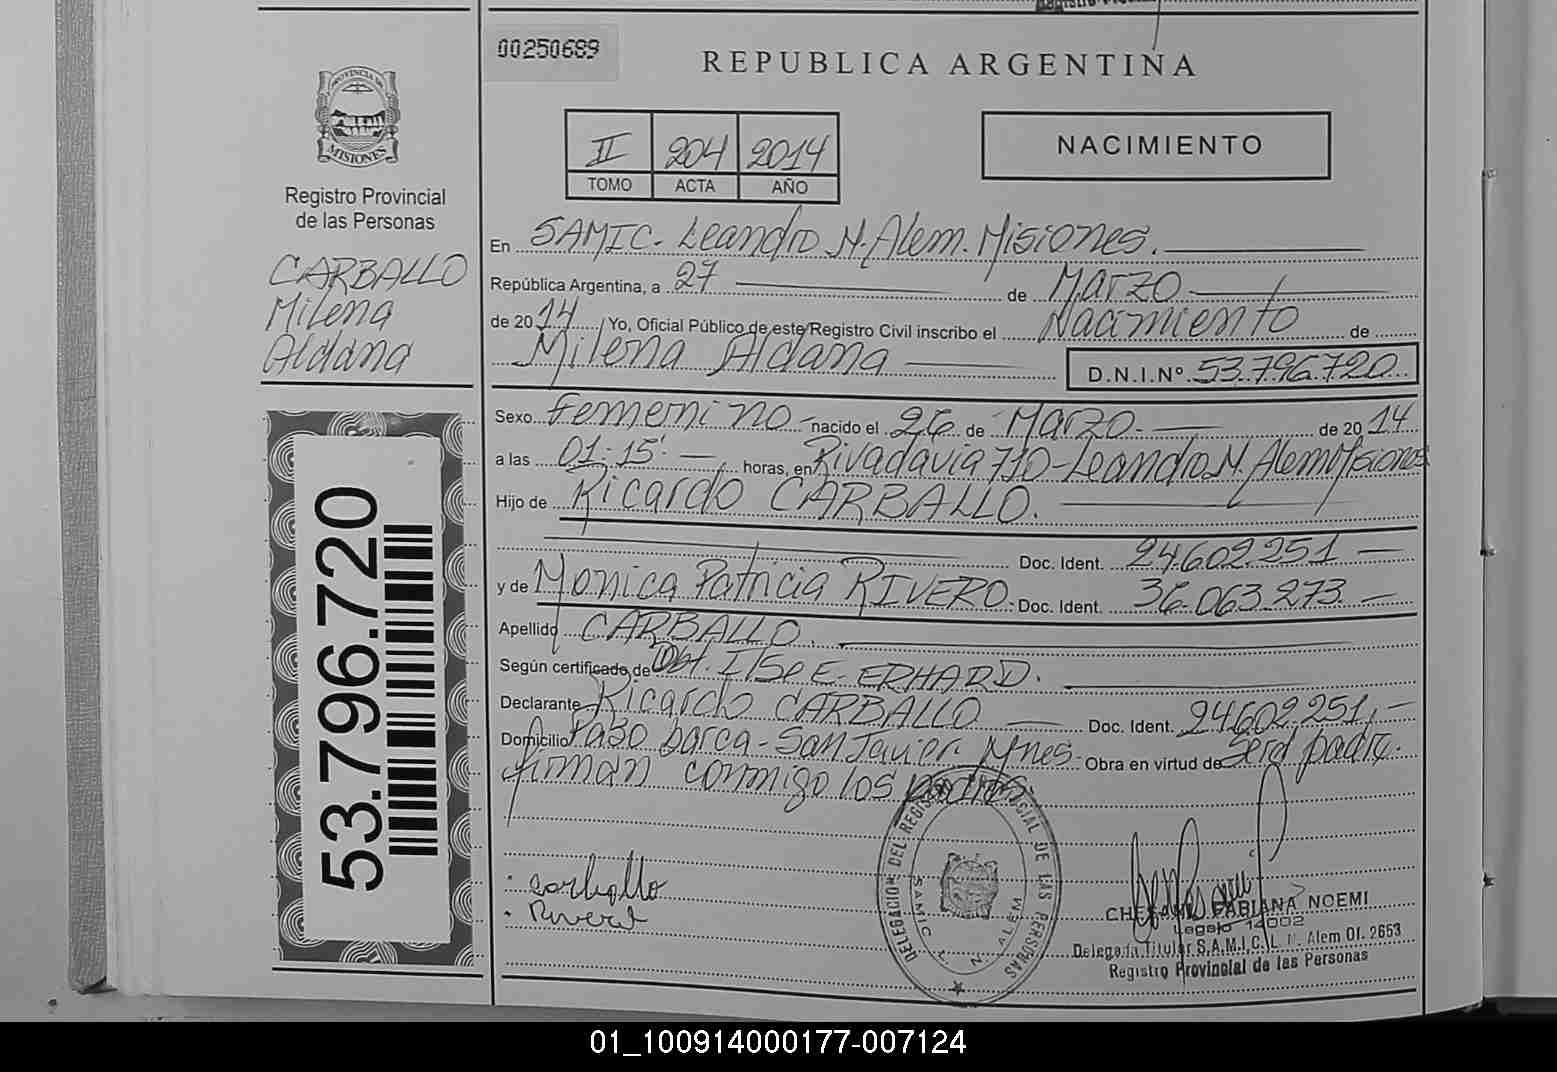 00250689
REPUBLICA ARGENTINA
PROVINCIA DE
MISIONES
Registro Provincial
de las Personas
CARBALLO
Milena
Aldana
II 204 2014
TOMO ACTA AÑO
NACIMIENTO
En SAMIC. Leandro N. Alem. Misiones.
República Argentina, a 27 de Marzo
de 2014 Yo, Oficial Público de este Registro Civil inscribo el Nacimiento de
Milena Aldana D.N.I.Nº 53.796.720
Sexo Femenino nacido el 26 de Marzo de 2014
a las 01:15' horas, en Rivadavia 710-Leandro N. Alem Misiones
Hijo de Ricardo CARBALLO.
Doc. Ident. 24.602.251
y de Monica Patricia RIVERO. Doc. Ident. 36.063.273
Apellido CARBALLO.
Según certificado de Obt. Ilse E. ERHARD.
Declarante Ricardo CARBALLO Doc. Ident. 24602251
Domicilio Paso barca - San Javier. Mnes. Obra en virtud de Ser el padre.
firman conmigo los padres
53.796.720
carballo
Rivero
DELEGACION DEL REGISTRO PROVINCIAL DE LAS PERSONAS
SAMIC L. N. ALEM
FABIANA NOEMI
Legajo 14002
Delegada Titular S.A.M.I.C. L. N. Alem Of. 2653
Registro Provincial de las Personas
01_100914000177-007124